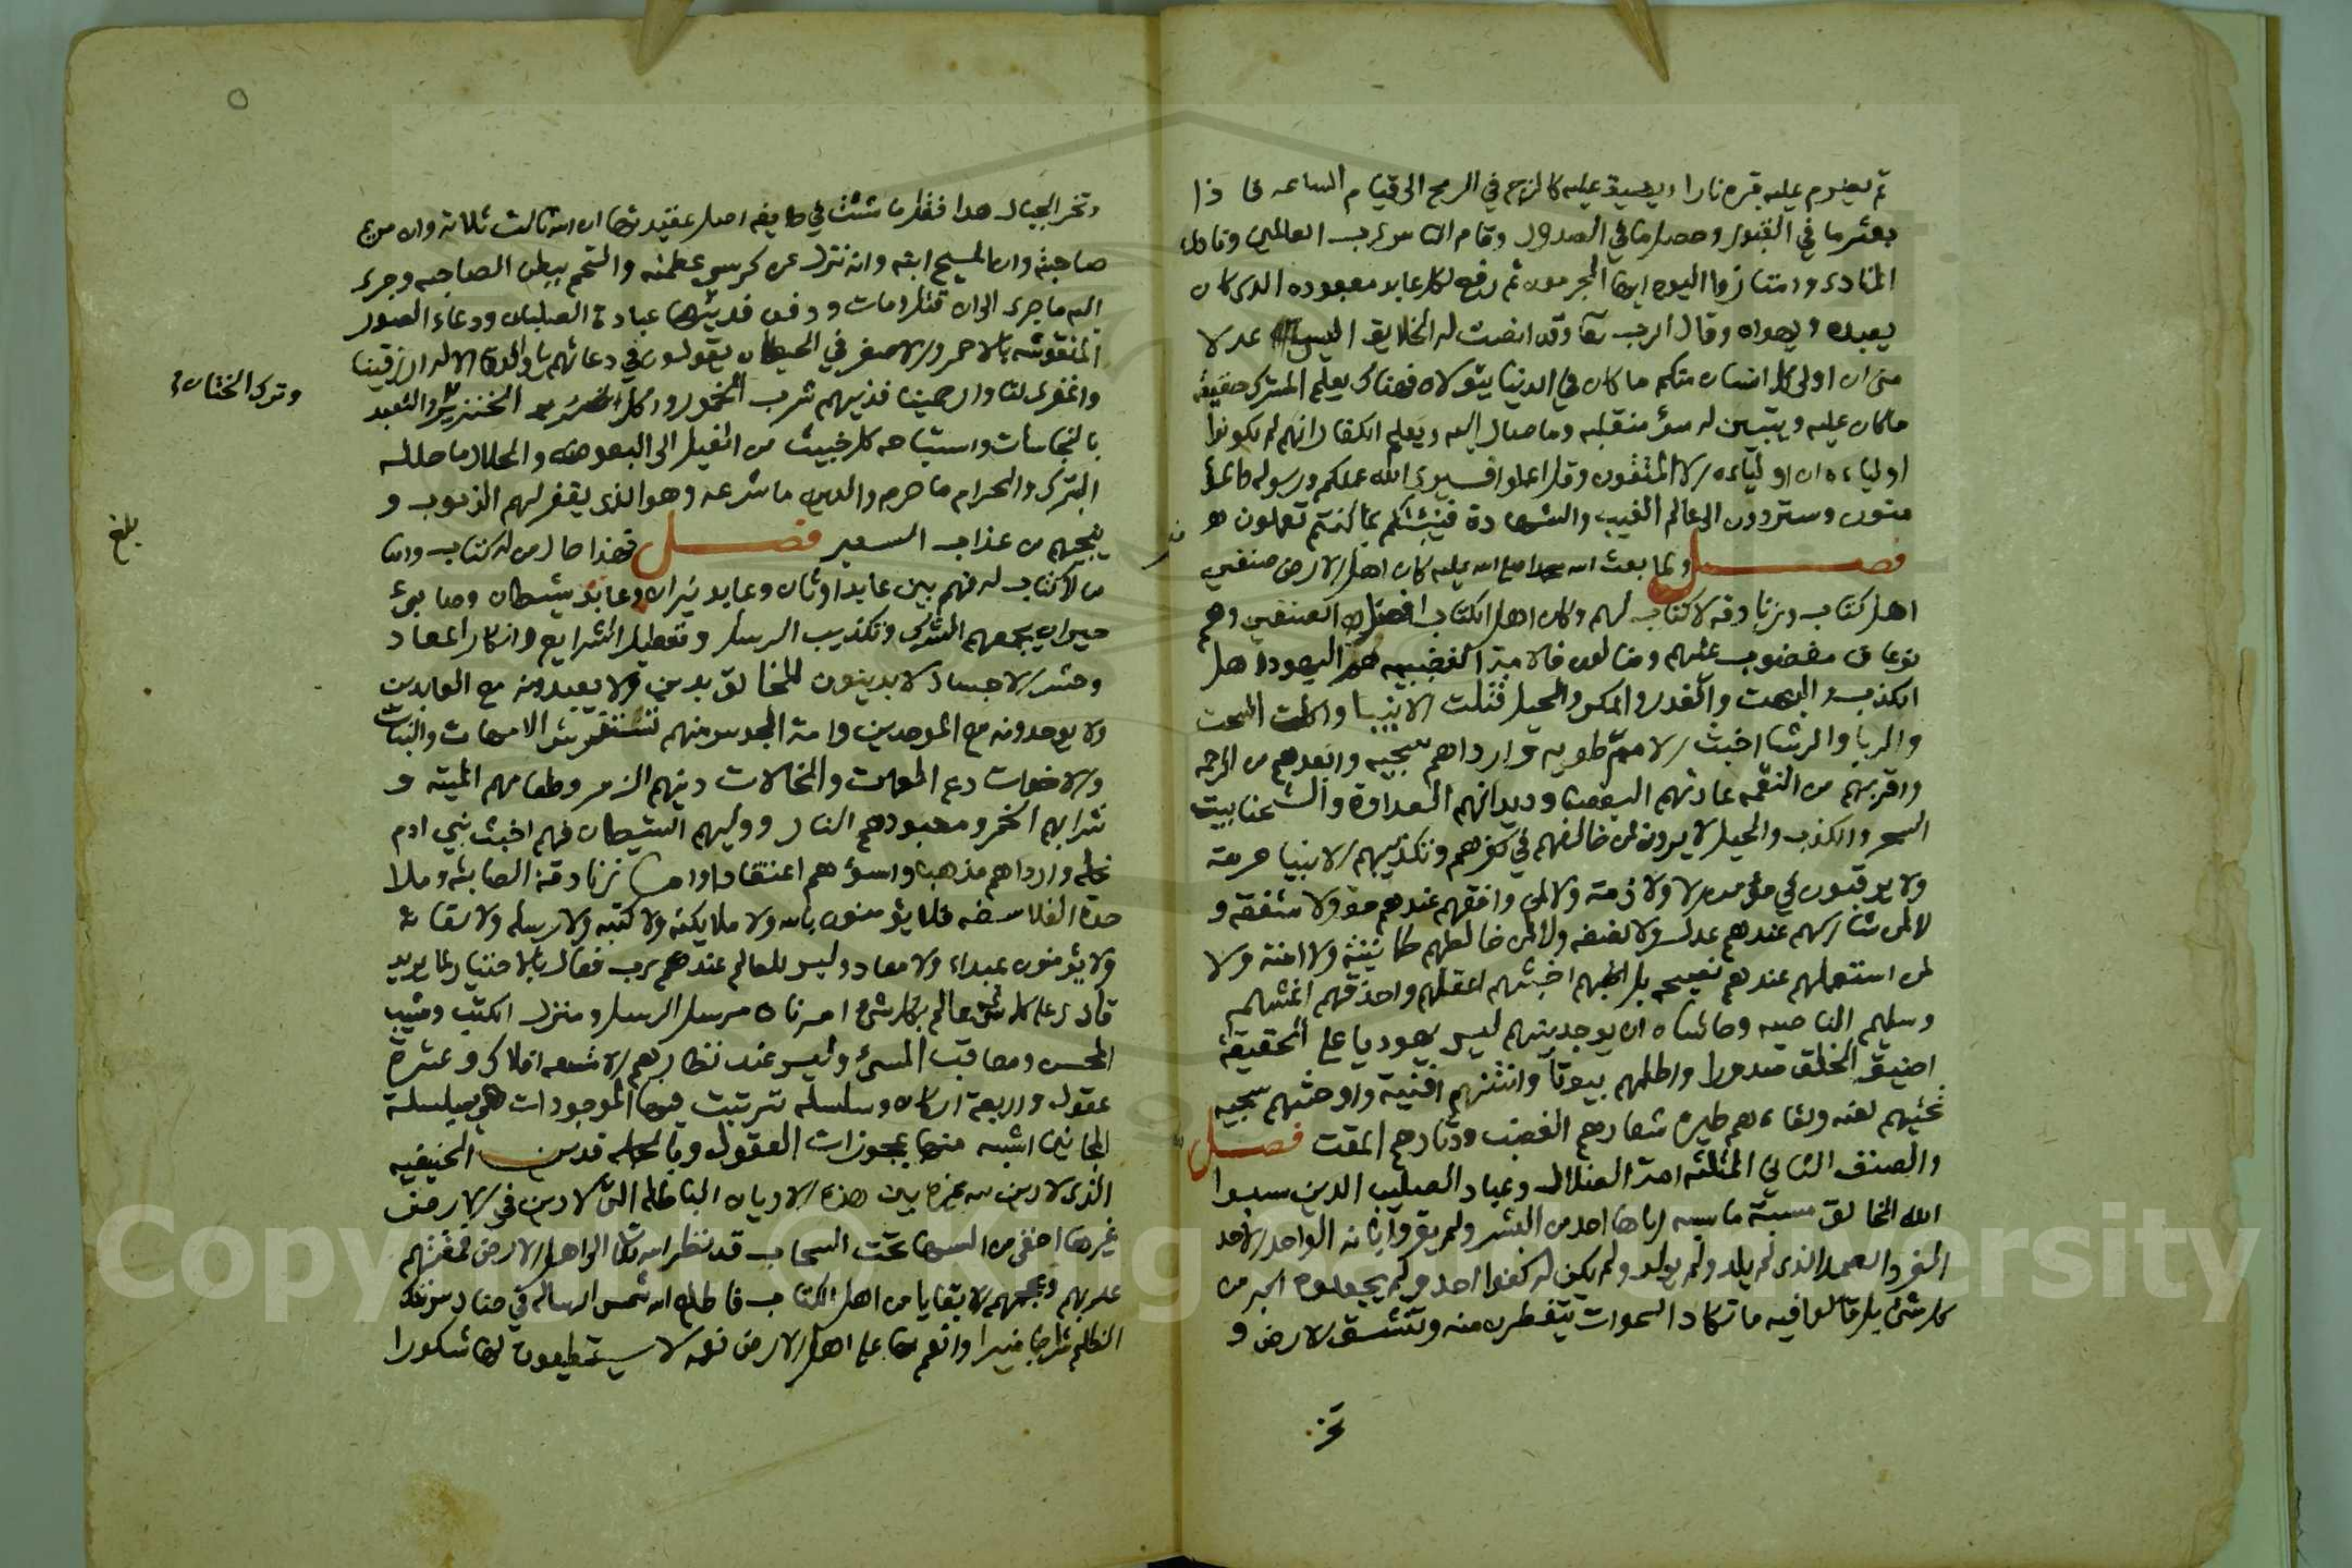 ثم يضرم عليه قبره نارا ويضيق عليه كالزج في الرمح الى قيام الساعه فاذا
بعثر ما في القبور وحصل ما في الصدور وقام الناس لرب العالمين ونادى
المنادى وامتازوا اليوم ايها المجرمون ثم رفع لكل عابد معبوده الذى كان
يعبده ويهواه وقال الرب تعا وقد انصت له الخلايق اليس عدلا
منى ان اولى كل انسان منكم ما كان في الدنيا يتولاه فهناك يعلم المشرك حقيقة
ما كان عليه ويتبين له سؤ منقلبه وما صار اليه ويعلم الكفار انهم لم يكونوا
اولياءه ان اولياءه الا المتقون وقل اعملوا فسيرى الله عملكم ورسوله والمؤ
منون وستردون الى عالم الغيب والشهادة فينبئكم بما كنتم تعملون
فصل ولما بعث الله محمدا صلى الله عليه كان اهل الارض صنفين
اهل كتاب وزنادقه لا كتاب لهم وكان اهل الكتاب افضل الصنفين وهم
نوعان مغضوب عليهم وضالون فالامة الغضبيه هم اليهود اهل
الكذب والبهت والغدر والمكر والحيل قتلت الانبيا واكلت السحت
والربا والرشا اخبث الامم طويه وارداهم سجيه وابعدهم من الرحمه
واقربهم من النقمه عادتهم البغضا وديدانهم العداوة والشحنا بيت
السحر والكذب والحيل لا يرون لمن خالفهم في كفرهم وتكذيبهم الانبيا حرمة
ولا يرقبون في مؤمن الا ولا ذمة ولا لمن وافقهم عندهم حق ولا شفقه و
لا لمن شاركهم عندهم عدل ولا نصفه ولا لمن خالطهم طمانينة ولا امنة ولا
لمن استعملهم عندهم نصيحه بل اخبثهم اعقلهم واحذقهم اغشهم
وسليم الناصيه وحاشاه ان يوجد بينهم ليس بيهوديا على الحقيقة
اضيق الخلق صدورا واظلمهم بيوتا وانتنهم افنية واوحشهم سجيه
تحيتهم لعنه ولقاءهم طيرة شعارهم الغضب ودثارهم المقت فصل
والصنف الثاني المثلثه امة الضلال وعباد الصليب الذين سبوا
الله الخالق مسبة ما سبه اياها احد من البشر ولم يقروا بانه الواحد الاحد
الفرد الصمد الذى لم يلد ولم يولد ولم يكن له كفوا احد ولم يجعلوه اكبر من
كل شئ بل قالوا فيه ما تكاد السموات يتفطرن منه وتنشق الارض و
تخر
وتخر الجبال هدا فقل ما شئت في طايفه اصل عقيدتها ان الله ثالث ثلاثة وان مريم
صاحبته وان المسيح ابنه وانه نزل عن كرسي عظمته والتحم ببطن الصاحبه وجرى
اليه ما جرى الى ان قتل ومات ودفن فدينها عبادة الصلبان ودعاء الصور
المنقوشه بالاحمر والاصفر في الحيطان يقولون في دعائهم يا والدة الاله ارزقينا
واغفرى لنا وارحمينا فدينهم شرب الخمور واكل الخنزير والتعبد
وترك الختان
بالنجاسات واستباحه كل خبيث من الفيل الى البعوضه والحلال ما حلله
البترك والحرام ما حرمه والدين ما شرعه وهو الذى يغفر لهم الذنوب و
ينجيهم من عذاب السعير فصل فهذا حال من له كتاب واما
بلغ
من لا كتاب له فهم بين عابد اوثان وعابد نيران وعابد شيطان وصابئ
حيران يجمعهم الشرك وتكذيب الرسل وتعطيل الشرايع وانكار المعاد
وحشر الاجساد لا يدينون للخالق بدين ولا يعبدونه مع العابدين
ولا يوحدونه مع الموحدين وامة المجوس منهم تستفرش الامهات والبنات
والاخوات دع العمات والخالات دينهم الزمر وطعامهم الميته و
شرابهم الخمر ومعبودهم النار ووليهم الشيطان فهم اخبث بني ادم
نحله وارداهم مذهبا واسؤهم اعتقادا واما زنادقة الصابئه وملا
حدة الفلاسفه فلا يؤمنون بالله ولا ملايكته ولا كتبه ولا رسله ولا لقائه
ولا يؤمنون بمبداء ولا معاد وليس للعالم عندهم رب فعال بالاختيار لما يريد
قادر على كل شئ عالم بكل شئ امرناه مرسل الرسل ومنزل الكتب ومثيب
المحسن ومعاقب المسئ وليس عند نظارهم الا تسعه افلاك وعشرة
عقول واربعة اركان وسلسلة ترتبت فيها الموجودات هي بسلسلة
المجانين اشبه منها بمجوزات العقول وبالجمله فدين الحنيفيه
الذى لا دين لله غيره بين هذه الاديان الباطله التى لا دين في الارض
غيرها اخفى من السها تحت السحاب قد نظر الله الى اهل الارض فمقتهم
عربهم وعجمهم الا بقايا من اهل الكتاب فاطلع الله شمس الرساله في حنادس تلك
الظلم سراجا منيرا وانعم بها على اهل الارض نعمه لا يستطيعون لها شكورا